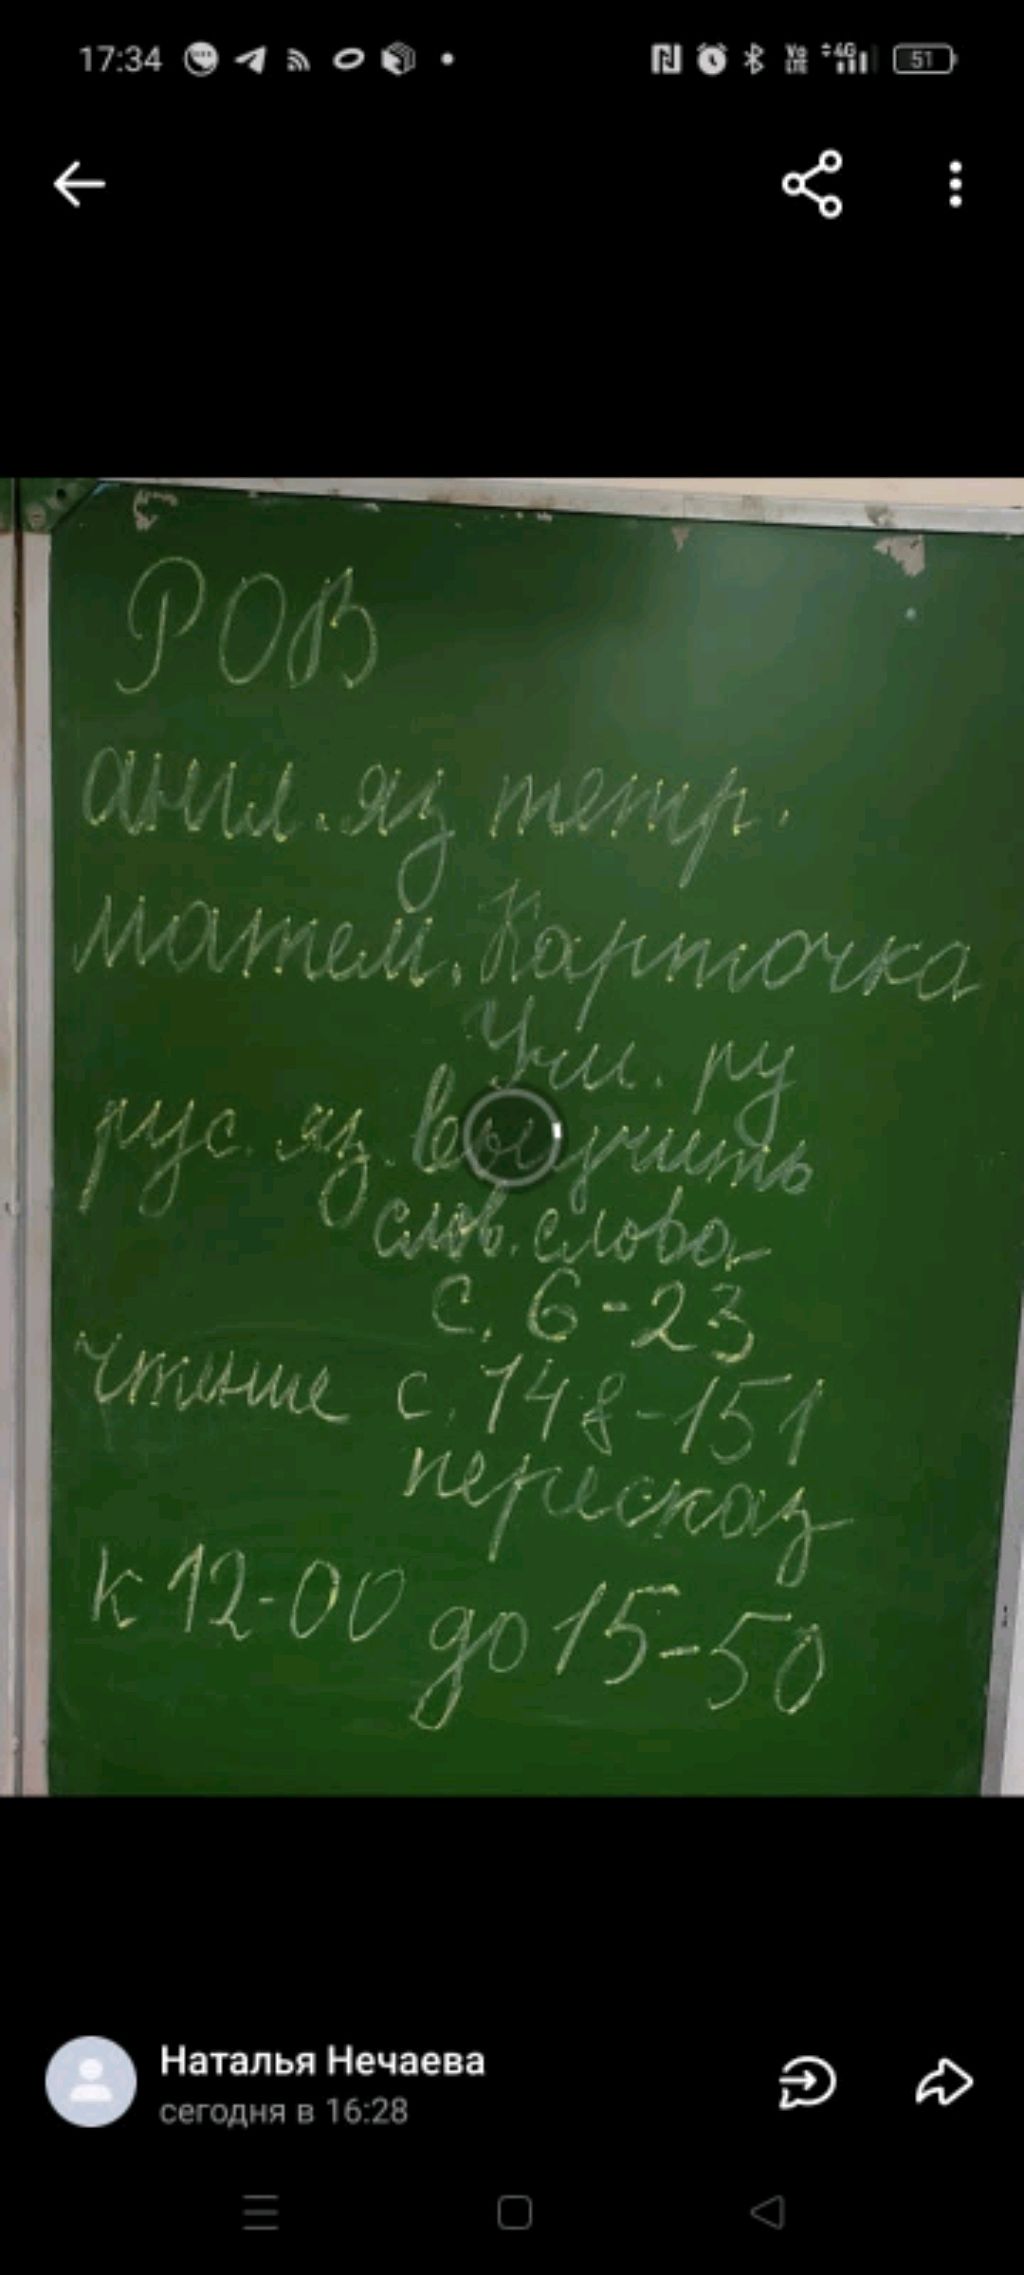 17:34
VoLTE 4G 51
РОВ
англ. яз тетр.
матем. Карточка
Учи. ру
рус. яз. выучить
слов. слова
с. 6-23
чтение с. 148-151
пересказ
к 12-00 до 15-50
Наталья Нечаева
сегодня в 16:28